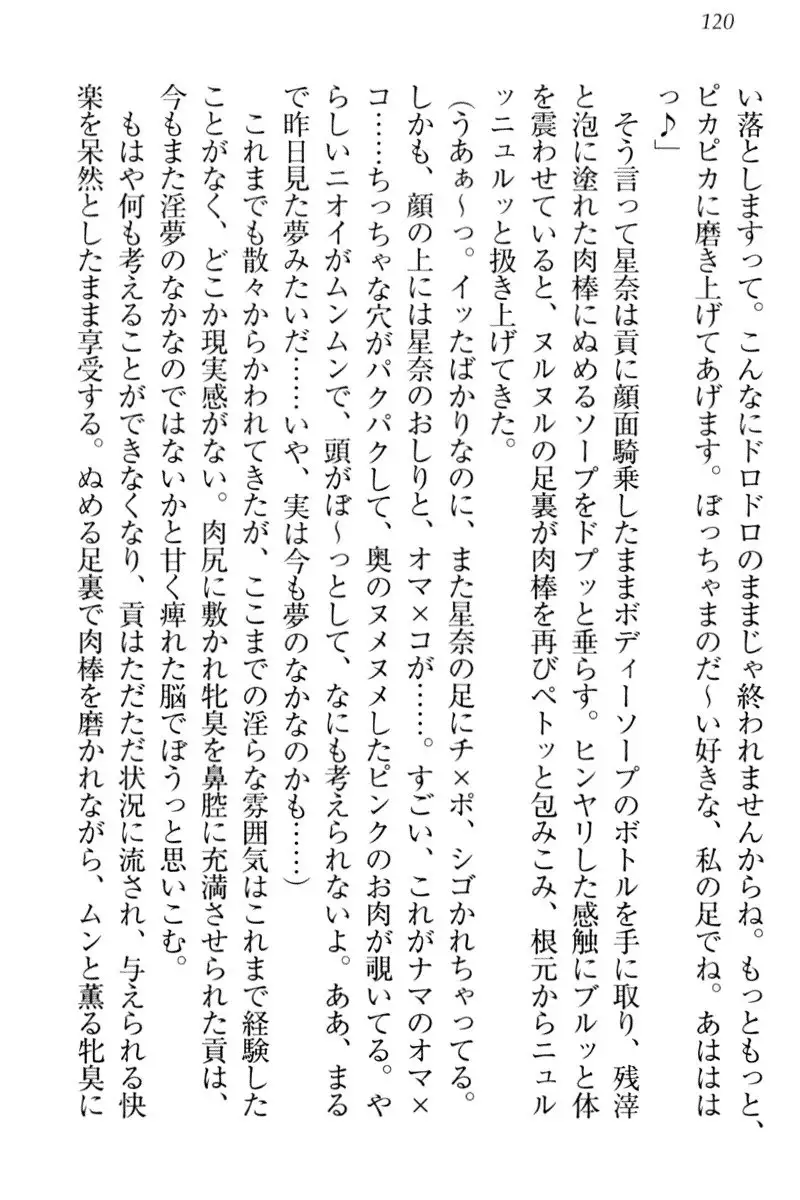 120
い落としますって。こんなにドロドロのままじゃ終われませんからね。もっともっと、
ピカピカに磨き上げてあげます。ぼっちゃまのだ〜い好きな、私の足でね。あははは
っ♪」
そう言って星奈は貢に顔面騎乗したままボディーソープのボトルを手に取り、残滓
と泡に塗れた肉棒にぬめるソープをドプッと垂らす。ヒンヤリした感触にブルッと体
を震わせていると、ヌルヌルの足裏が肉棒を再びペトッと包みこみ、根元からニュル
ッニュルッと扱き上げてきた。
(うあぁ〜っ。イッたばかりなのに、また星奈の足にチ×ポ、シゴかれちゃってる。
しかも、顔の上には星奈のおしりと、オマ×コが……。すごい、これがナマのオマ×
コ……ちっちゃな穴がパクパクして、奥のヌメヌメしたピンクのお肉が覗いてる。や
らしいニオイがムンムンで、頭がぼ〜っとして、なにも考えられないよ。ああ、まる
で昨日見た夢みたいだ……いや、実は今も夢のなかなのかも……)
これまでも散々からかわれてきたが、ここまでの淫らな雰囲気はこれまで経験した
ことがなく、どこか現実感がない。肉尻に敷かれ牝臭を鼻腔に充満させられた貢は、
今もまた淫夢のなかなのではないかと甘く痺れた脳でぼうっと思いこむ。
もはや何も考えることができなくなり、貢はただただ状況に流され、与えられる快
楽を呆然としたまま享受する。ぬめる足裏で肉棒を磨かれながら、ムンと薫る牝臭に